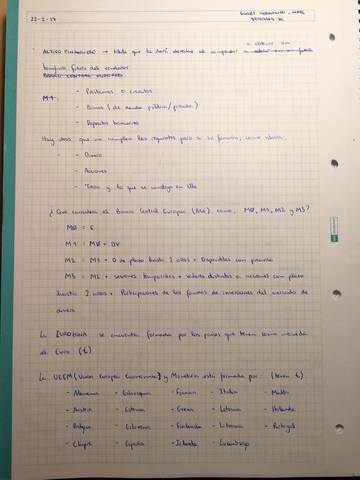 22-2-17
ACTIVO FINANCIERO → título que le dará derecho al comprador a obtener un
beneficio futuro del vendedor
BANCO CENTRAL EUROPEO
- Préstamos o créditos
- Bonos (de deuda pública/privada)
- Depósitos bancarios
Hay otros que no cumplen los requisitos pero sí su función, como ahorro.
- Dinero
- Acciones
- Tierra y lo que se construye en ella
¿Qué considera el Banco Central Europeo (BCE) como, MØ, M1, M2 y M3?
MØ = E
M1 : MØ + DV
M2 : M1 + D de plazo hasta 2 años + Disponibles con preaviso
M3 : M2 + cesiones temporales + valores distintos a acciones con plazo
hasta 2 años + Participaciones de los fondos de inversiones del mercado de
dinero
La EUROZONA se encuentra formada por los países que tienen como moneda
el Euro (€)
La UEEM (Unión Europea Económica) y Monetaria está formada por: (tienen €)
- Alemania - Eslovaquia - Francia - Italia - Malta
- Austria - Estonia - Grecia - Letonia - Holanda
- Bélgica - Eslovenia - Finlandia - Lituania - Portugal
- Chipre - España - Irlanda - Luxemburgo